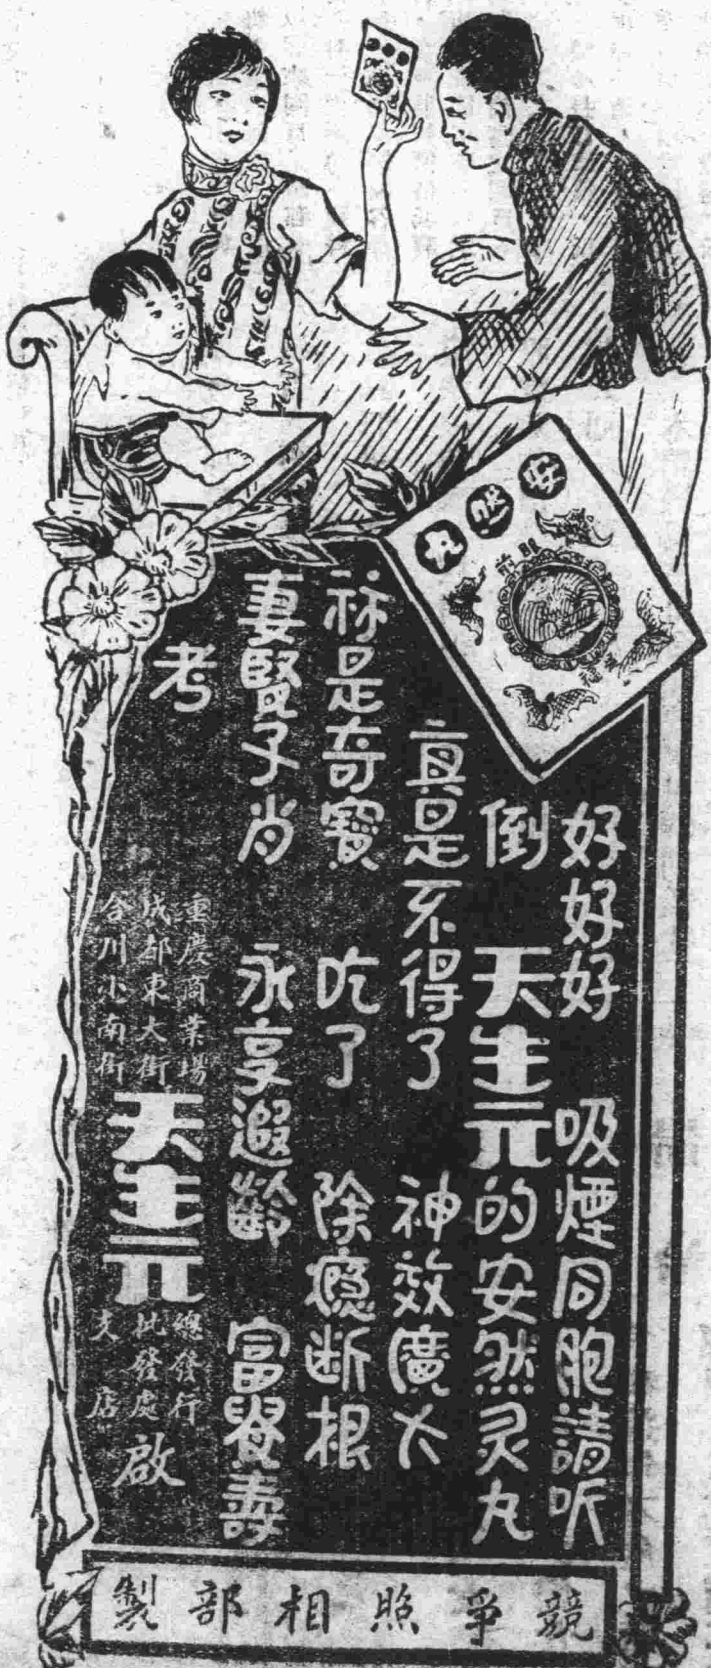 安然丸
好好好 吸煙同胞請听
倒 天生元的安然灵丸
真是不得了 神效廣大
祘是奇寶 吃了 除癮断根
妻賢子肖 永享遐齡 富貴壽
考
重慶商業場
成都東大街
合川小南街
天生元
總發行
批發處
支店
啟
競爭照相部製